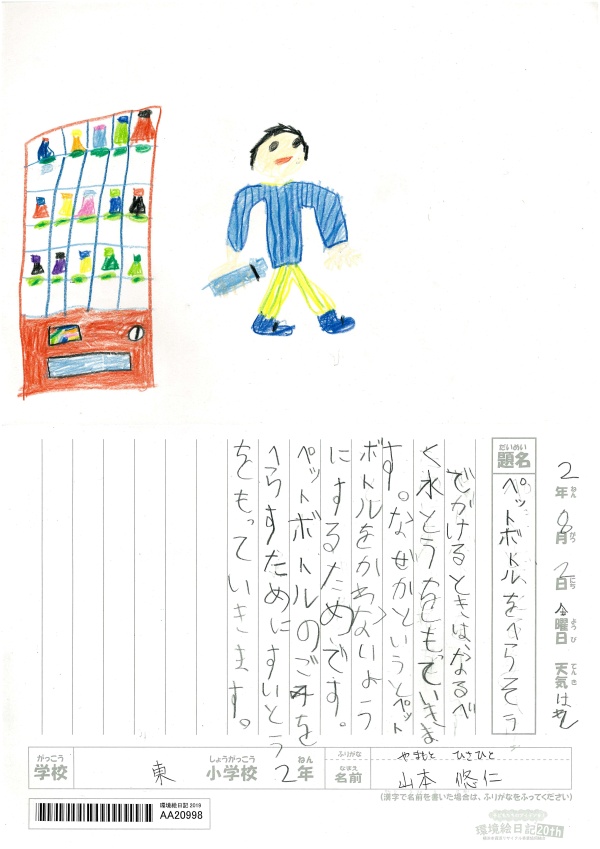 2年8月2日金曜日 天気はれ
ねん がつ にち ようび てんき
だいめい
題名 ペットボトルをへらそう
でかけるときは、なるべ
く水とうをもっていきま
す。なぜかというとペット
ボトルをかわないよう
にするためです。
ペットボトルのごみを
へらすためにすいとう
をもっていきます。
がっこう しょうがっこう ねん
学校 東 小学校 2年
ふりがな やまもと ひさひと
なまえ
名前 山本 悠仁
(漢字で名前を書いた場合は、ふりがなをふってください)
環境絵日記 2019
AA20998
環境絵日記 20th